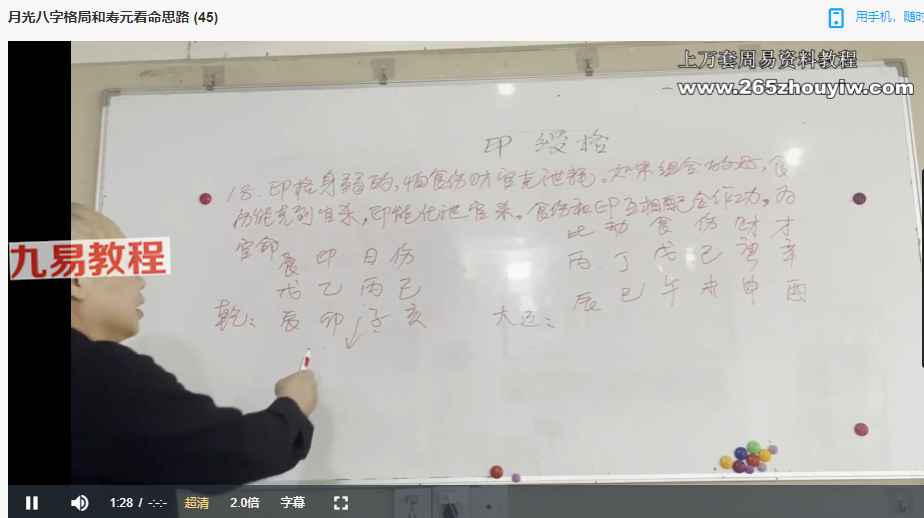 月光八字格局和寿元看命思路 (45)
用手机，随时
上万套周易资料教程
www.265zhouyiw.com
印绶格
18.印格身弱的，怕食伤财官克泄耗。如果组合的好，食
伤能克制官杀，印能化泄官杀。食伤和印互相配合作功，为
官命
食 印 日 伤
比 劫 食 伤 财 才
戊 乙 丙 己
丙 丁 戊 己 庚 辛
乾: 辰 卯 子 亥
大运: 辰 巳 午 未 申 酉
九易教程
1:28 / -:-:-
超清
2.0倍
字幕